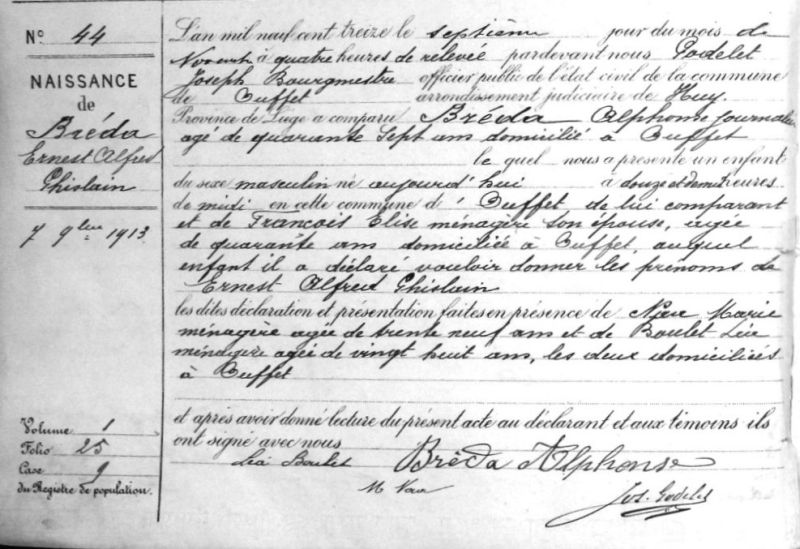 N° 44
NAISSANCE
de
Bréda
Ernest Alfred
Ghislain
7 9bre 1913
Volume 1
Folio 25
Case 9
du Registre de population.
L'an mil neuf cent treize le septième jour du mois de
Novembre à quatre heures de relevée pardevant nous Godelet
Joseph Bourgmestre officier public de l'état civil de la commune
de Ouffet arrondissement judiciaire de Huy.
Province de Liège a comparu Bréda Alphonse journalier
agé de quarante sept ans domicilié à Ouffet
le quel nous a présenté un enfant
du sexe masculin né aujourd'hui à douze et demi heures
de midi en cette commune d'Ouffet de lui comparant
et de François Elise ménagère son épouse, agée
de quarante ans domiciliée à Ouffet, auquel
enfant il a déclaré vouloir donner les prénoms de
Ernest Alfred Ghislain
les dites déclaration et présentation faites en présence de Marie
ménagère agée de trente neuf ans et de Boulet Léa
ménagère agée de vingt huit ans, les deux domiciliées
à Ouffet
et après avoir donné lecture du présent acte au déclarant et aux témoins ils
ont signé avec nous
Léa Boulet Bréda Alphonse
M
Jos. Godelet